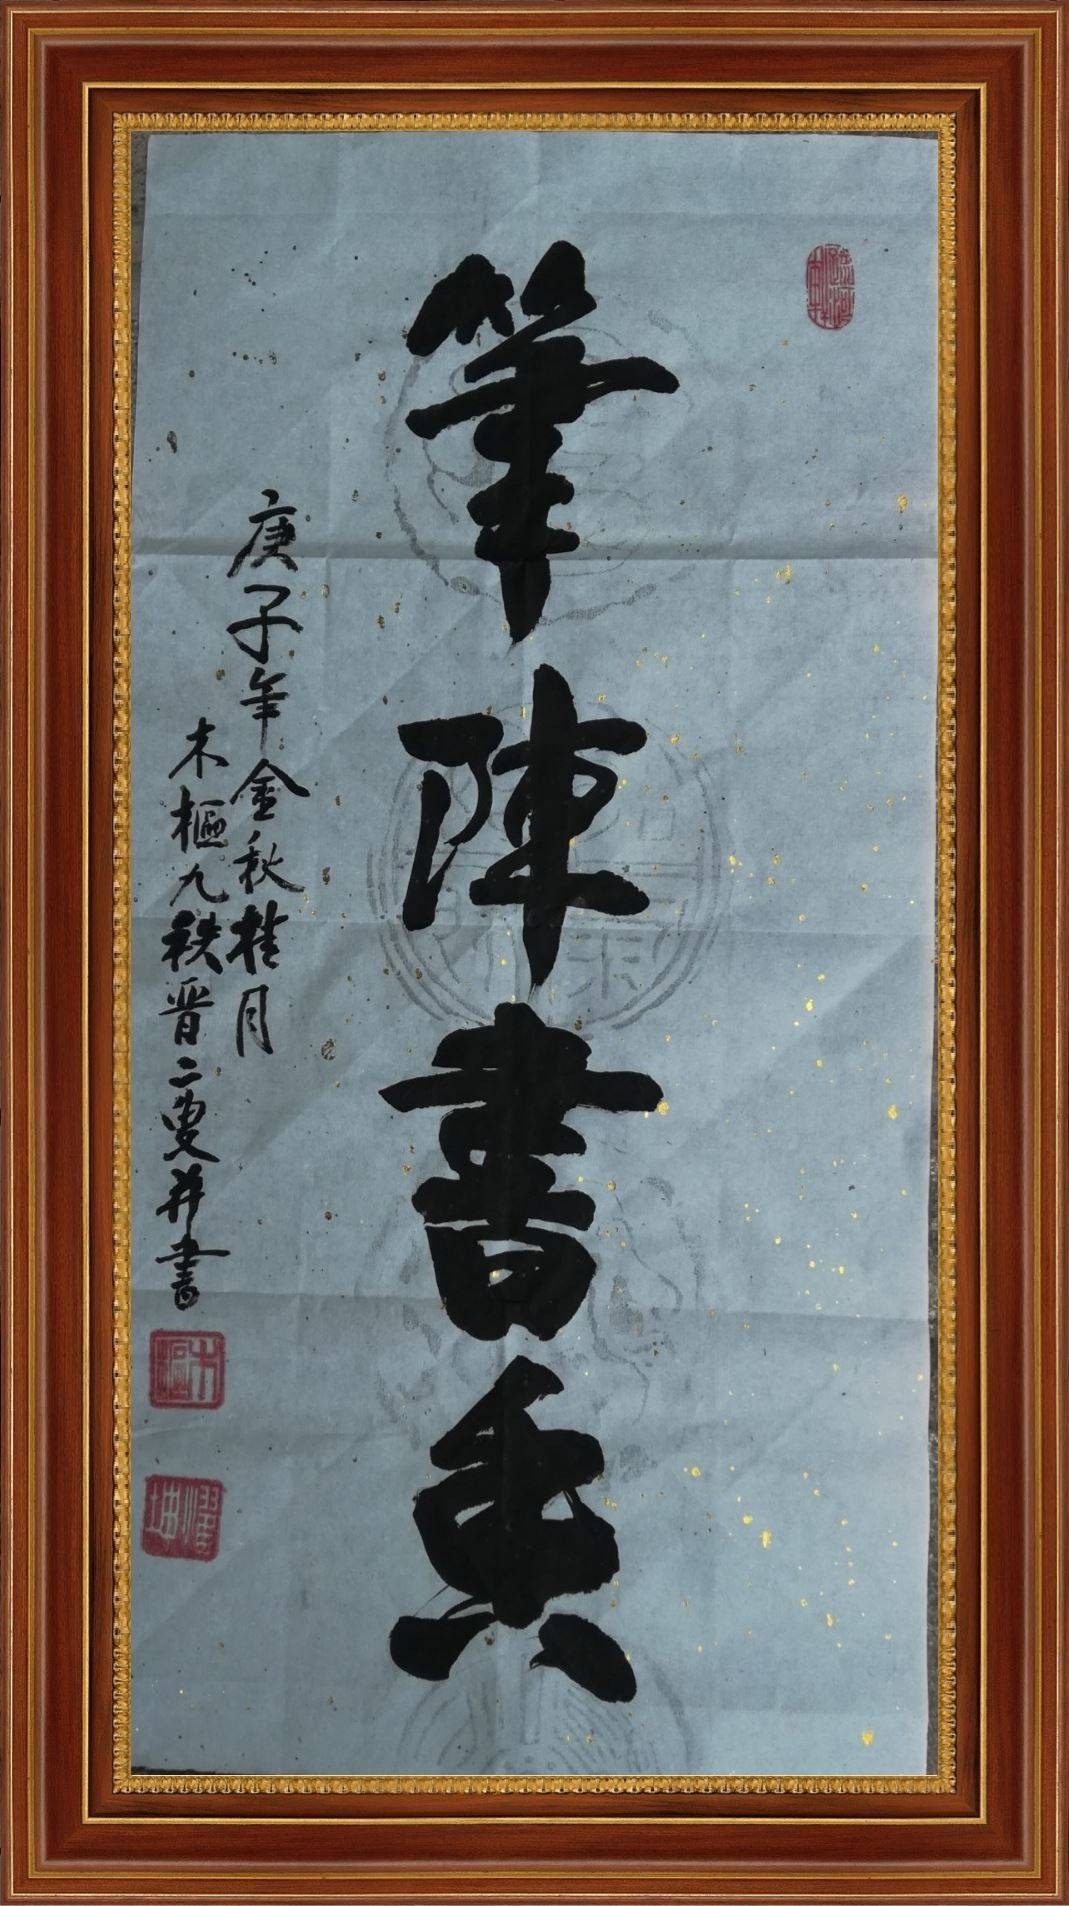 筆陣書香
庚子年金秋桂月
木樞九秩晋二叟并書
木樞